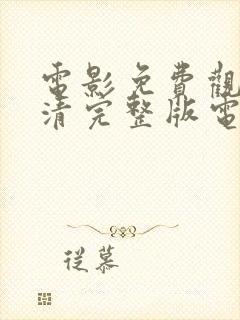 電影免費觀
清完整版電
從慕